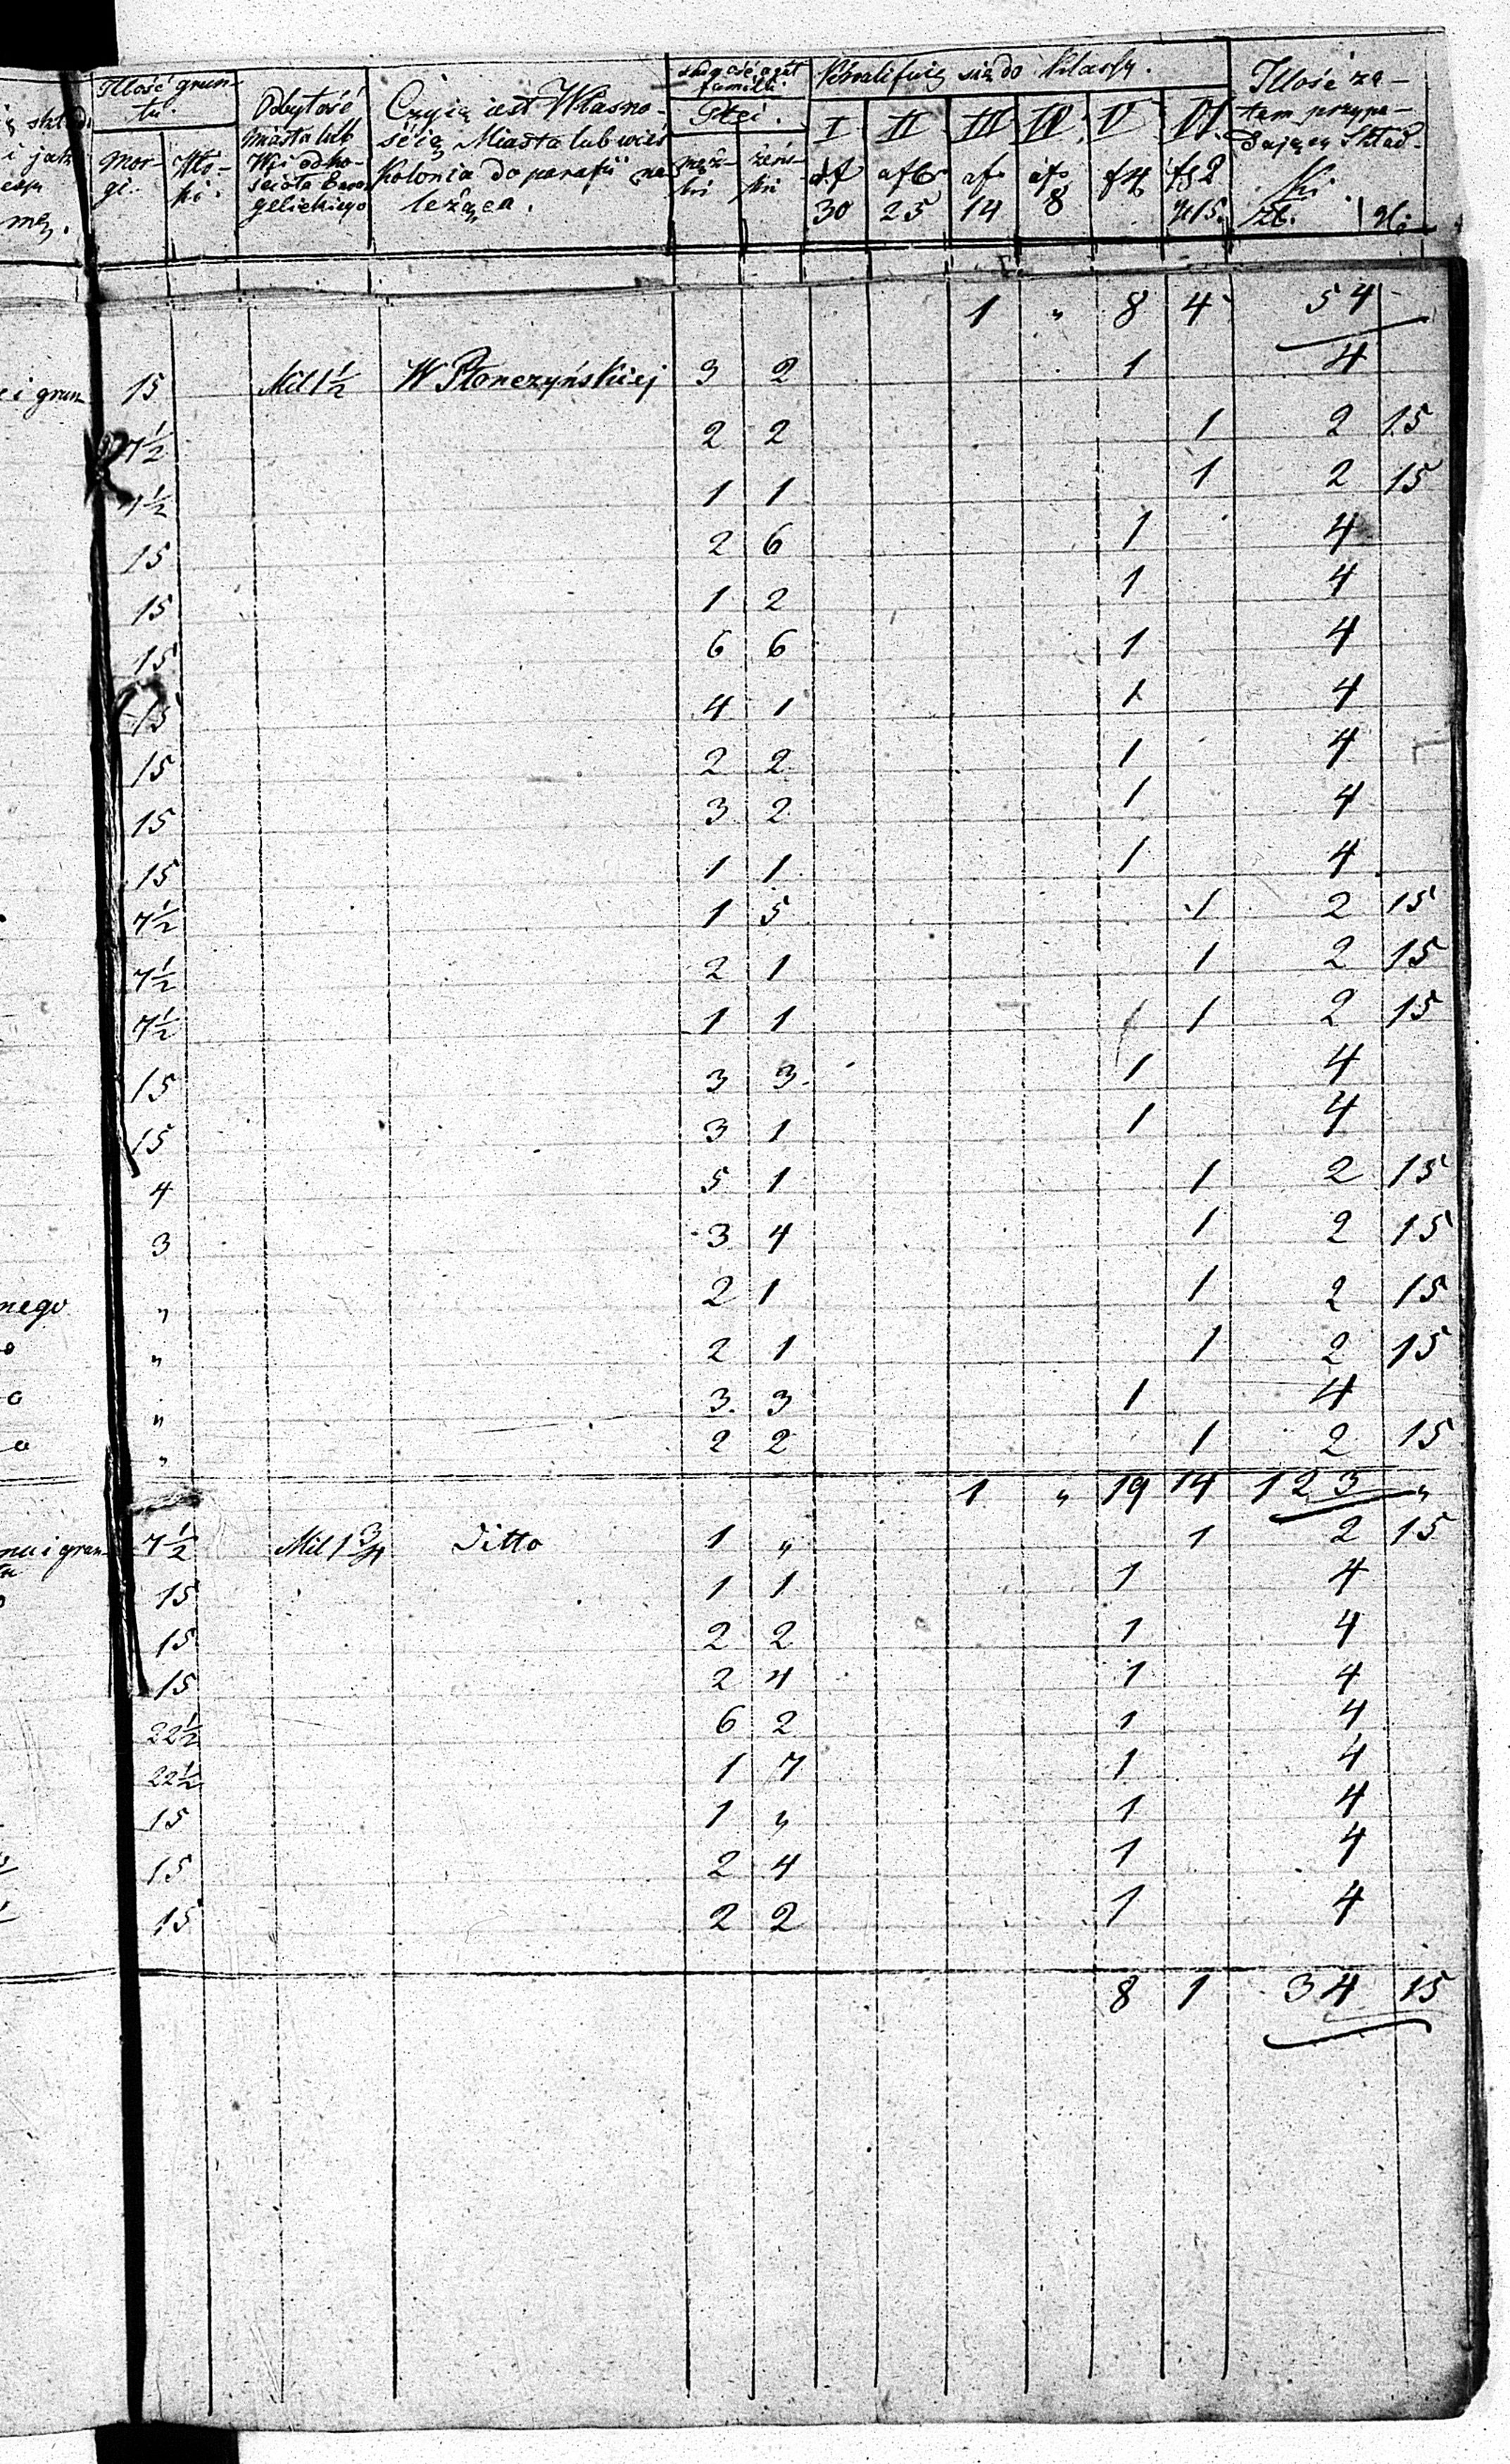 Illość grun-
tu.
Mor-
gi.
Wło-
ki.
Odbytość
Miasta lub
Wsi od ko-
ścioła Ewan
gelickiego
Czyią iest Własno-
ścią Miasta lub wieś
Kolonia do parafii na
leżąca.
familii.
Płci.
męz-
ki
żeńs-
ki
Kwalifuią się do Klassy.
I
30
II
25
III
14
IV
8
V
f 4
VI
f 2
gr 15.
Illość za-
tem przypa-
dającey Skład-
ki.
zł. gr.
1 „ 8 4 54
i grun 15 Mil 1½ W Płonczyńskiej 3 2 1 4
7½ 2 2 1 2 15
7½ 1 1 1 2 15
15 2 6 1 4
15 1 2 1 4
15 6 6 1 4
15 4 1 1 4
15 2 2 1 4
15 3 2 1 4
15 1 1 1 4
7½ 1 5 1 2 15
7½ 2 1 1 2 15
7½ 1 1 1 2 15
15 3 3 1 4
15 3 1 1 4
4 5 1 1 2 15
3 3 4 1 2 15
nego „ 2 1 1 2 15
o „ 2 1 1 2 15
o „ 3 3 1 4
o „ 2 2 1 2 15
1 „ 19 14 123 „
nu i grun- 7½ Mil 1¾ Ditto 1 „ 1 2 15
tu
15 1 1 1 4
15 2 2 1 4
15 2 4 1 4
22½ 6 2 1 4
22½ 1 7 1 4
15 1 „ 1 4
15 2 4 1 4
15 2 2 1 4
8 1 34 15